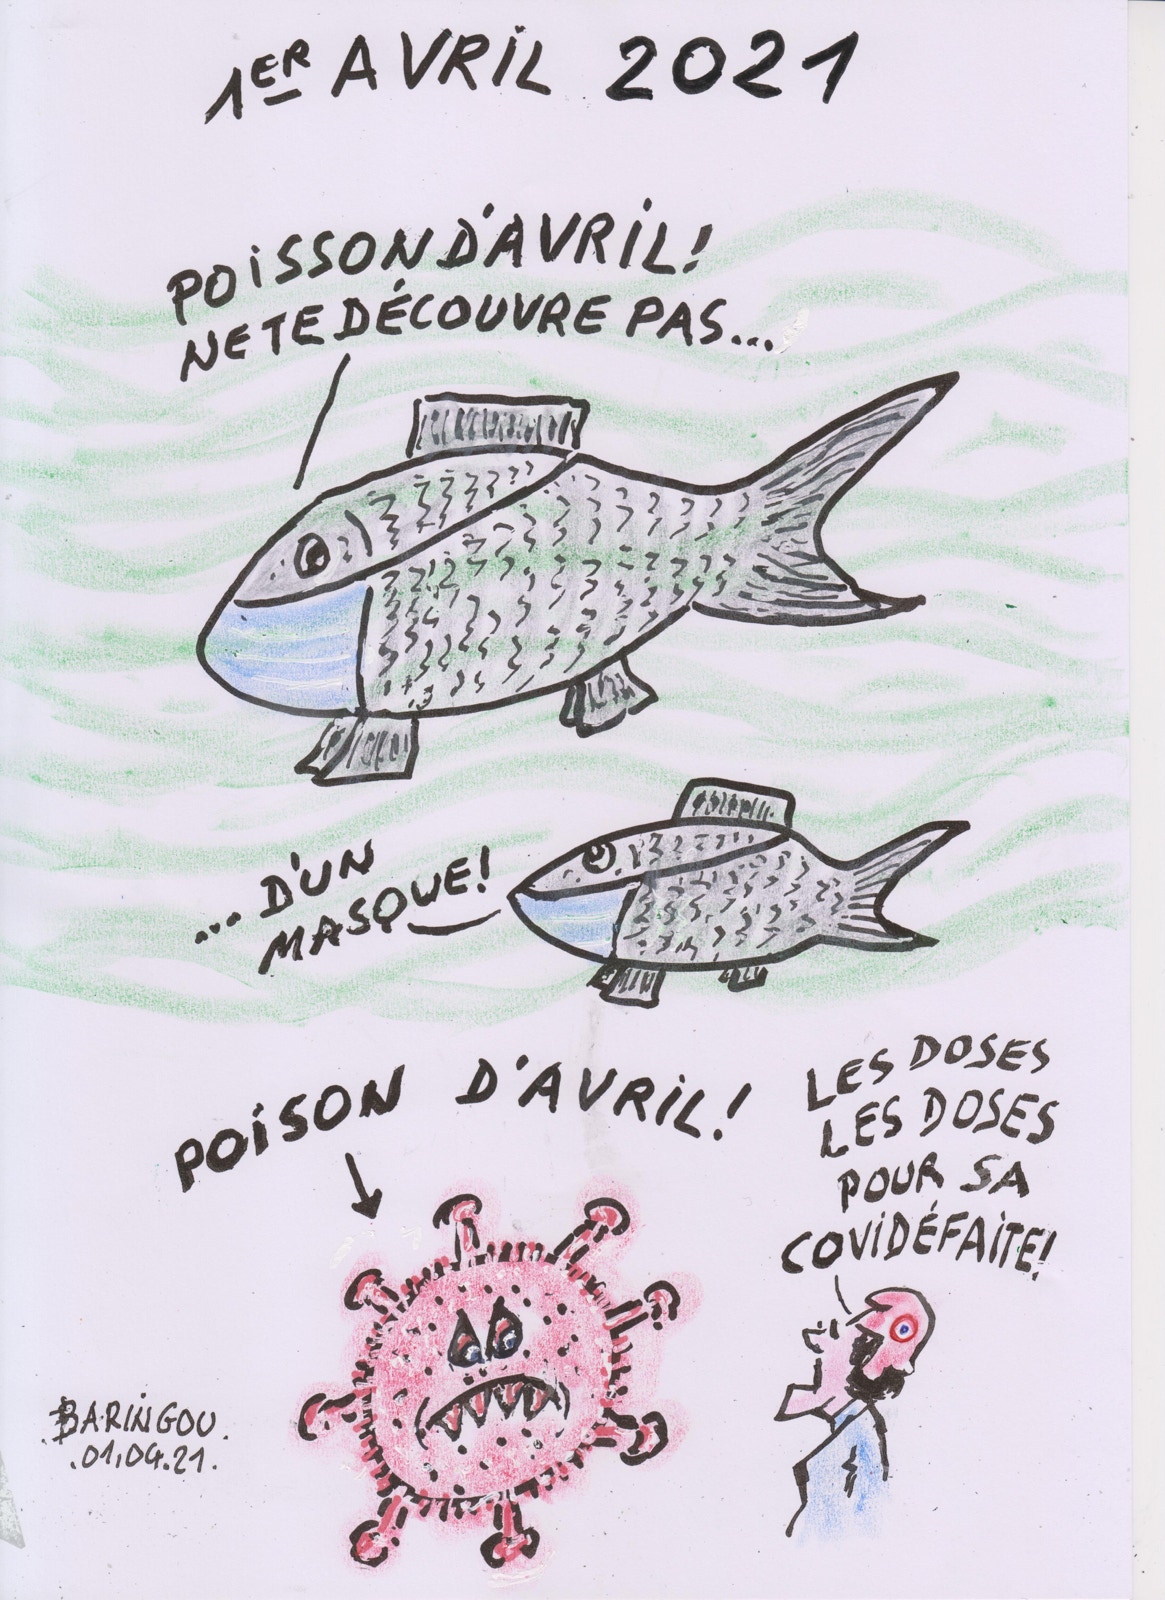 1ER AVRIL 2021
POISSON D'AVRIL!
NE TE DÉCOUVRE PAS...
... D'UN
MASQUE!
POISON D'AVRIL!
LES DOSES
LES DOSES
POUR SA
COVIDÉFAITE!
BARINGOU.
.01.04.21.